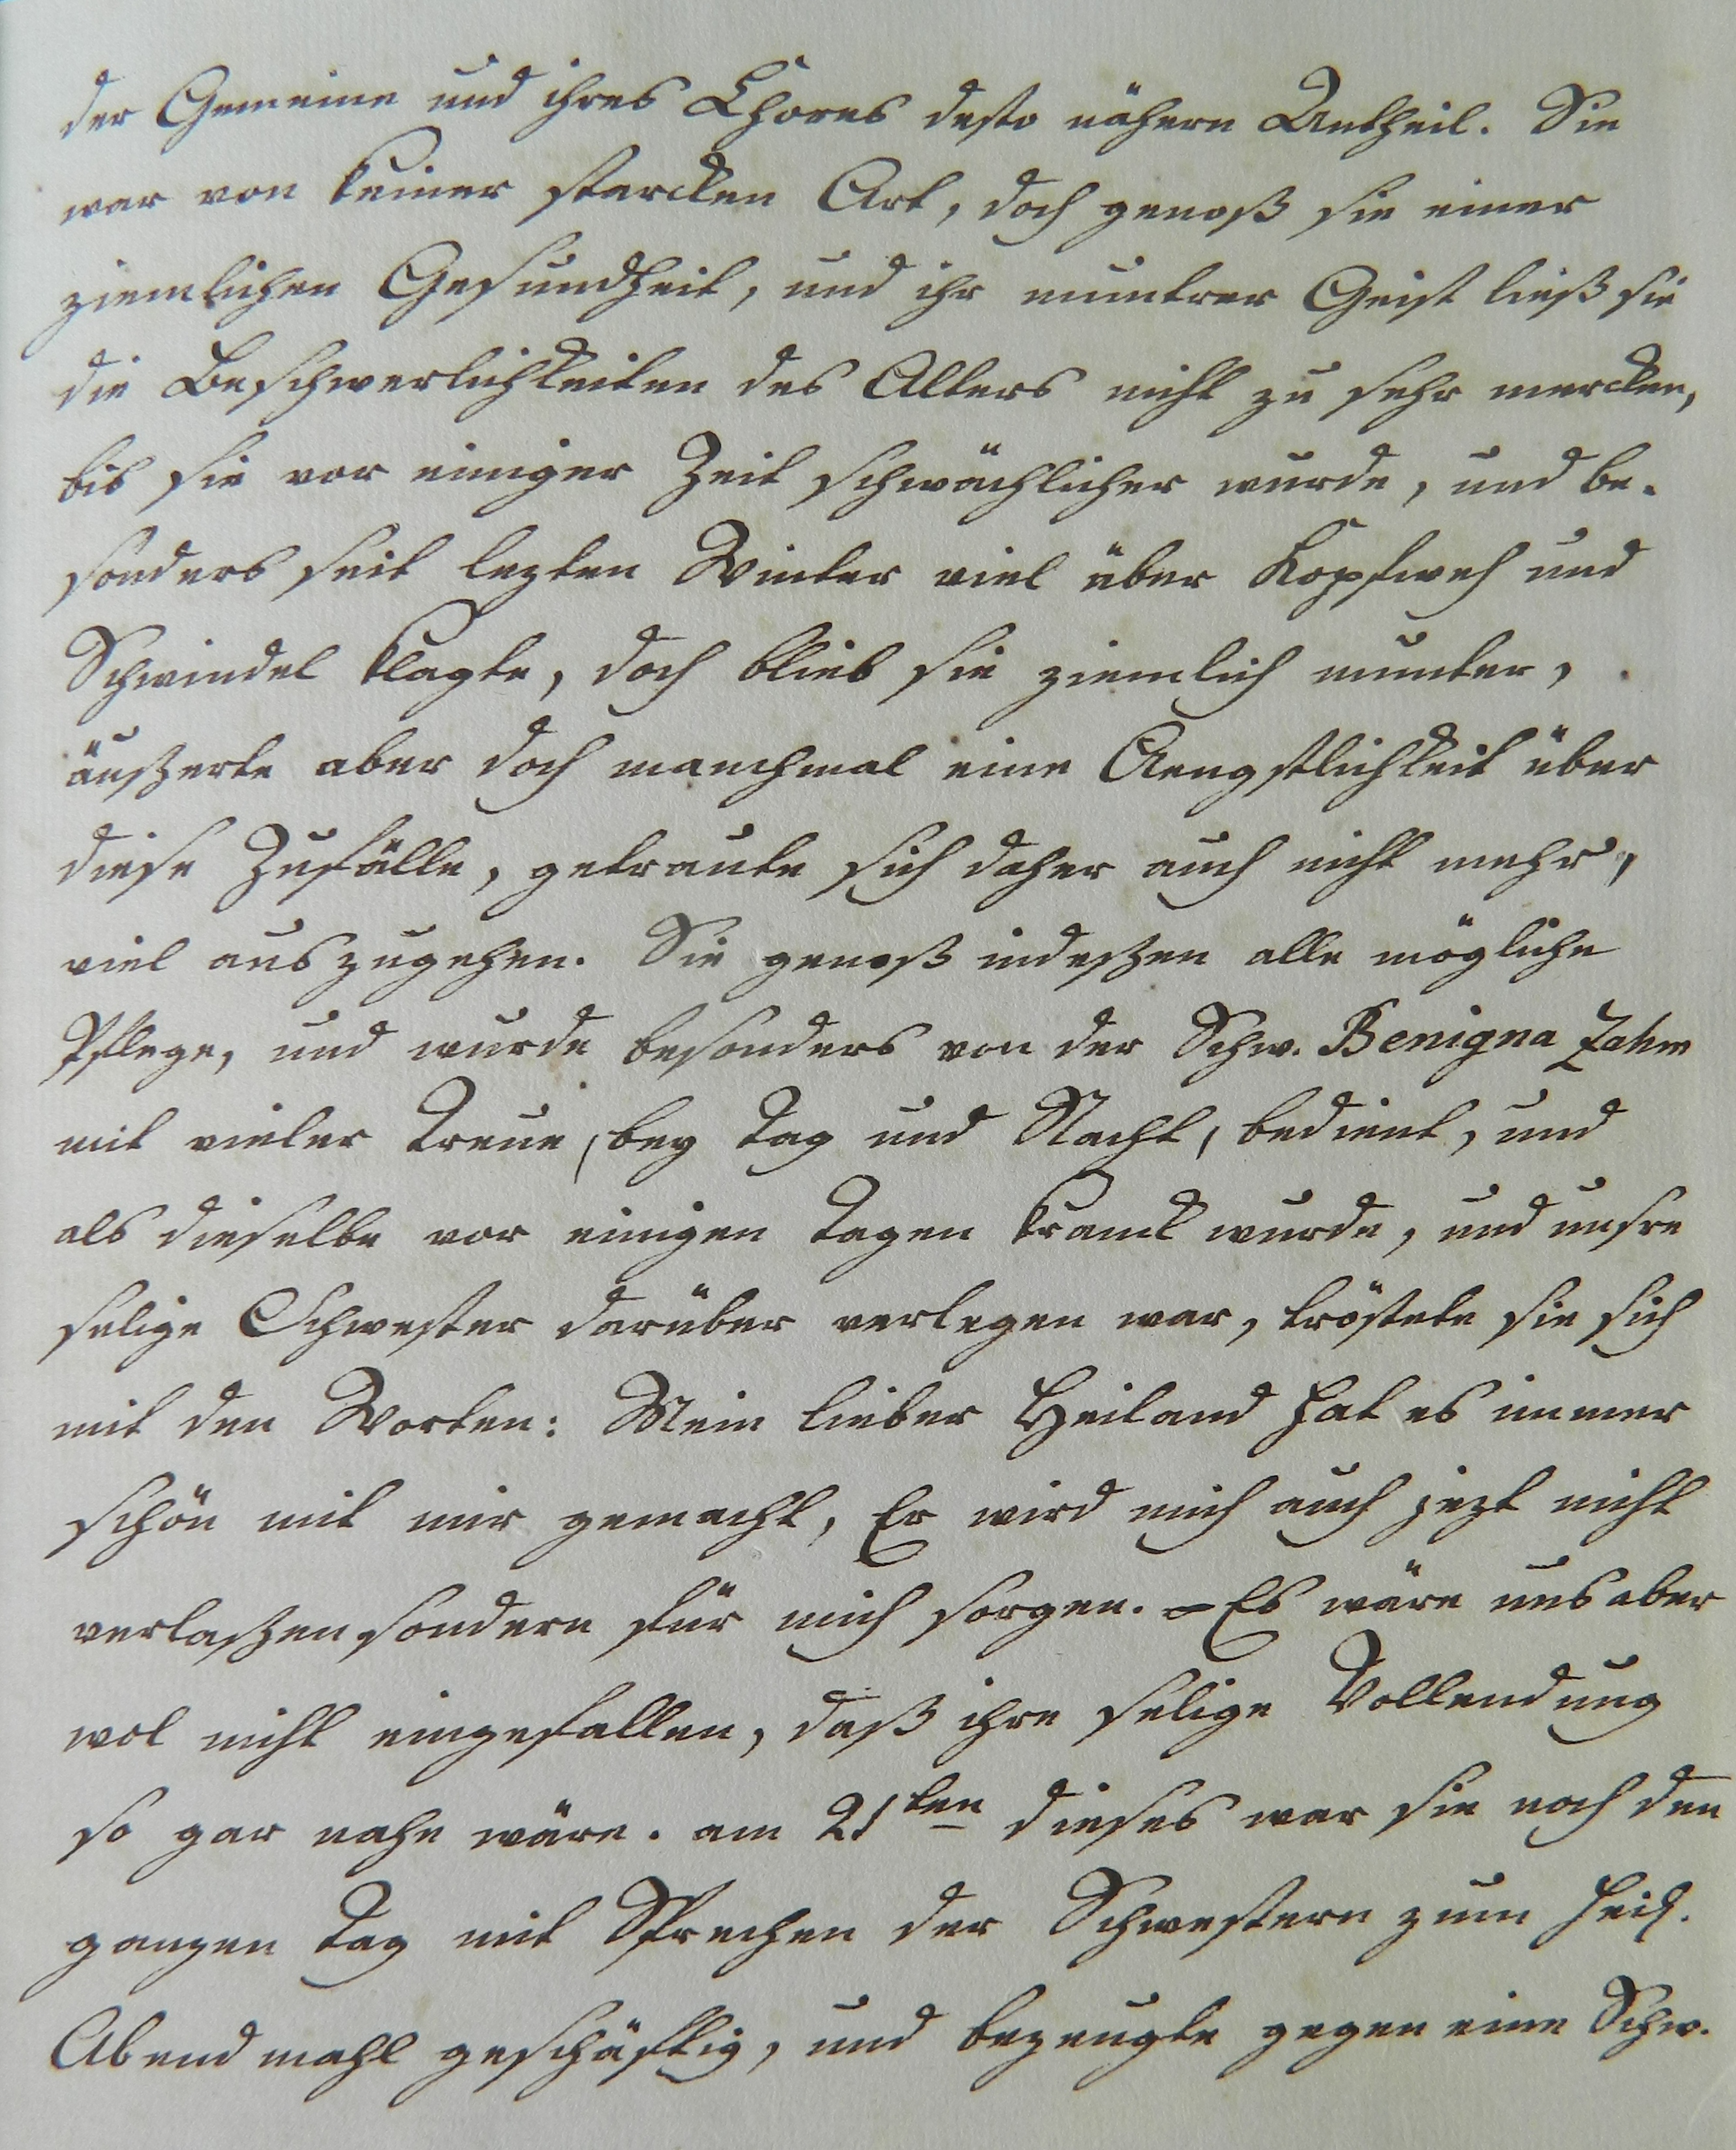 der Gemeine und ihres Chores desto nähern Antheil. Sie
war von keiner starcken Art, doch genoß sie einer
ziemlichen Gesundheit, und ihr muntrer Geist ließ sie
die Beschwerlichkeiten des Alters nicht zu sehr mercken,
bis sie vor einiger Zeit schwächlicher wurde, und be-
sonders seit lezten Winter viel über Kopfweh und
Schwindel klagte, doch blieb sie ziemlich munter,
äußerte aber doch manchmal eine Aengstlichkeit über
diese Zufälle, getraute sich daher auch nicht mehr,
viel auszugehen. Sie genoß indeßen alle mögliche
Pflege, und wurde besonders von der Schw. Benigna Zahm
mit vieler Treue, bey Tag und Nacht, bedient, und
als dieselbe vor einigen Tagen kranck wurde, und unsre
selige Schwester darüber verlegen war, tröstete sie sich
mit den Worten: Mein lieber Heiland hat es immer
schön mit mir gemacht, Er wird mich auch jezt nicht
verlaßen sondern für mich sorgen. – Es wäre uns aber
wol nicht eingefallen, daß ihre selige Vollendung
so gar nahe wäre. am 21ten dieses war sie noch den
ganzen Tag mit Sprechen der Schwestern zum heil.
Abendmahl geschäftig, und bezeugte gegen eine Schw.